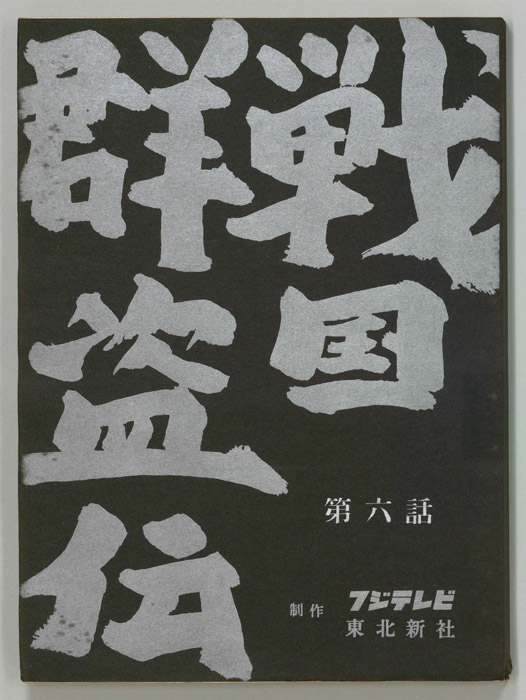 戦国
群盗伝
第六話
制作 フジテレビ
東北新社